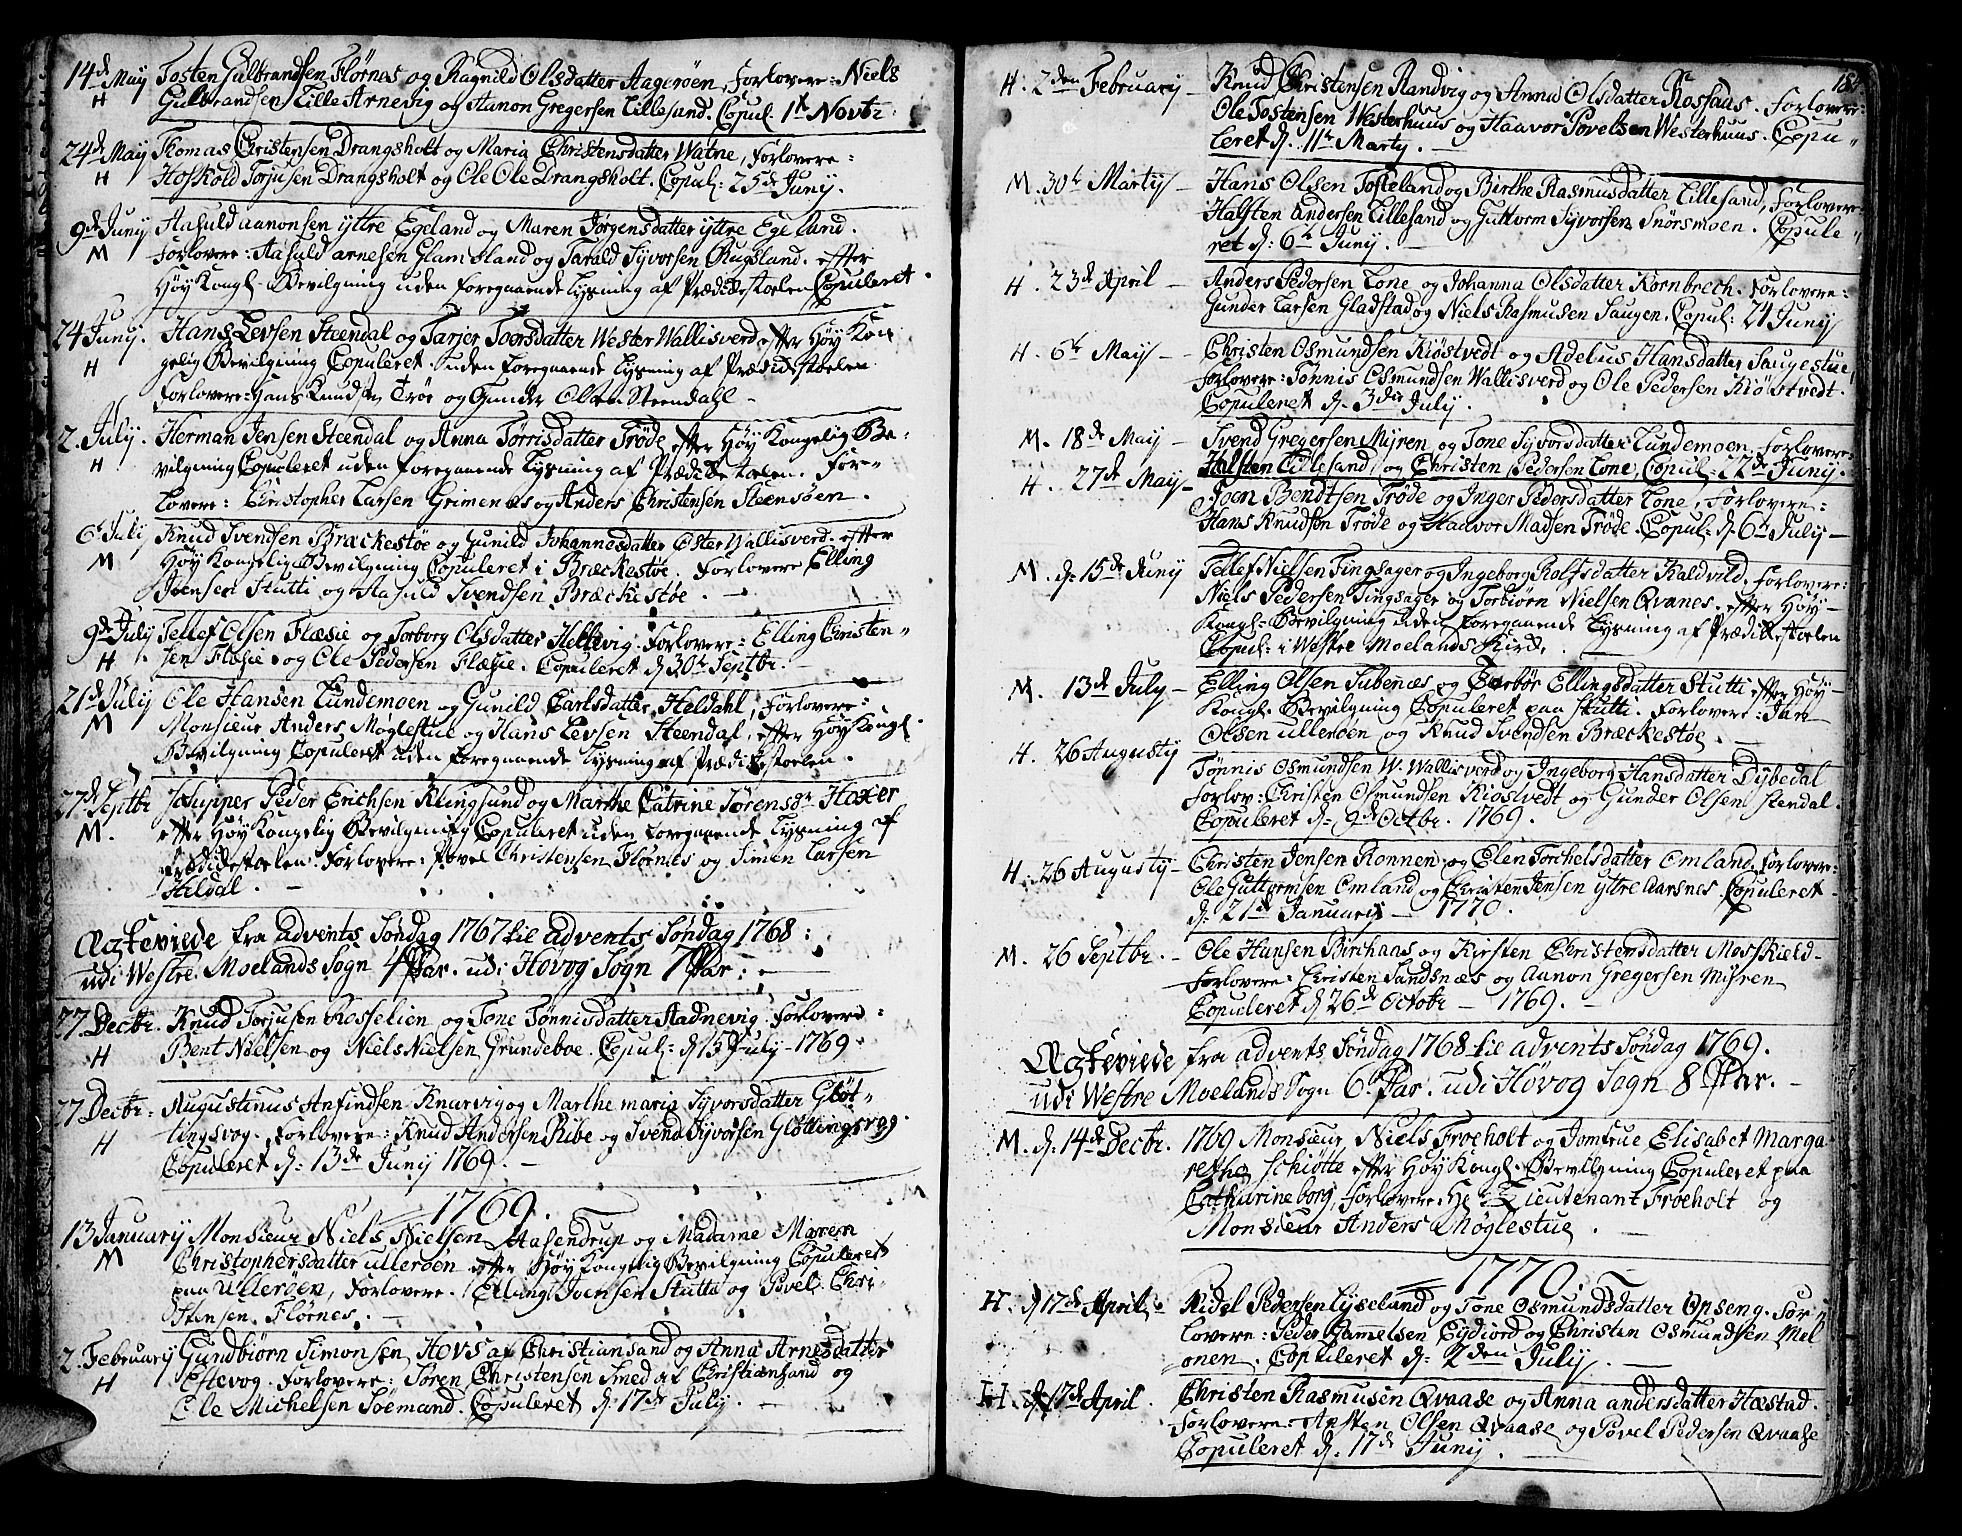 14d May Tosten Gulbrandsen Flørnes og Ragnild Olsdatter Aagerøen, Forlovere: Niels
H Gulbrandsen Lille Arnevig og Aanon Gregersen Lillesand. Copul. 1t Novbr.
24de May Thomas Christensen Drangsholt og Maria Christensdatter Watne, Forlovere:
H Hoskold Torjusen Drangsholt og Ole Ole Drangsholt. Copul: 25de Junij.
9de Junij Aasuld Aanonsen yttre Egeland og Maren Jørgensdatter yttre Egeland.
M Forlovere: Aasuld Arnesen Glamsland og Tarald Syvorsen Rugsland. efter
Høy Kongl. Bevilgning uden foregaaende Lysning af Prædikestoelen Copuleret.
24 Junij. Hans Levsen Steendal og Tarjer Toersdatter Wester Wallisverd efter Høy Kon
H gelig Bevilgning Copuleret uden foregaaende Lysning af Prædikestoelen.
Forlovere: Hans Knudsen Trøe og Gunder Olsen Steendahl
2. July. Herman Jensen Steendal og Anna Tørrisdatter Trøde efter Høy Kongelig Be-
H vilgning Copuleret uden foregaaende Lysning af Prædikestoelen. For-
lovere: Christopher Larsen Grimenes og Anders Christensen Steensøen.
6t July Knud Svendsen Bræckestøe og Gunild Johannesdatter Øster Wallisverd. efter
M Høy Kongelig Bevilgning Copuleret i Bræckestøe. Forlovere Elling
Joensen Stutti og Aasuld Svendsen Bræckestøe.
9de July Tellef Olsen Flæsie og Torborg Olsdatter Hellevig. Forlovere: Elling Christen-
H sen Flæsie og Ole Pedersen Flæsie. Copuleret d. 30t Septbr.
21de July Ole Hansen Lundemoen og Gunild Carlsdatter Heldahl, Forlovere:
M Monsieur Anders Møglestue og Hans Levsen Steendal, efter Høy Kongl.
Bevilgning Copuleret uden foregaaende Lysning af Prædikestoelen.
27de Septbr Schipper Peder Erichsen Klingsund og Marthe Catrine Sørensdr.
M. efter Høy Kongelig Bevilgning Copuleret uden foregaaende Lysning af
Prædikestoelen. Forlovere: Povel Christensen Flørnes og Simen Larsen
Heldal.
Ægteviede fra Advents Søndag 1767 til Advents Søndag 1768:
udi Westre Moelands Sogn 4 Par. udi Høvog Sogn 7 Par:
27 Decbr. Knud Torjusen Kosselien og Tone Tønnisdatter Stadnevig. Forlovere:
H Bent Nielsen og Niels Nielsen Grundeboe. Copul: d. 15 July 1769.
27 Decbr: Augustinus Anfindsen Knarvig og Marthe maria Syvorsdatter Gløt-
H tingsvog. Forlovere: Knud Andersen Ribe og Svend Syvorsen Gløttingsvog
Copuleret d: 13de Junij 1769.
1769.
13 January Monsieur Niels Nielsen Aasendrup og Madame Maren
M Christophersdatter Ullerøen efter Høy Kongelig Bevilgning Copuleret
paa Ullerøen, Forlovere. Elling Joensen Stutti og Povel Chri-
stensen Flørnes.
2. February Gundbiørn Simonsen Hovs af Christiansand og Anna Arnesdatter
H Estevog. Forlovere: Søren Christensen Smed af Christiansand og
Ole Michelsen Søemand. Copuleret d. 17de July.
H. 2den February Knud Christensen Randvig og Anna Olsdatter Rossaas. Forlovere:
Ole Tostensen Westerhuus og Haavor Povelsen Westerhuus. Copu-
leret d. 11te Marty.
M. 30te Martij Hans Olsen Tosteland og Birthe Rasmusdatter Lillesand, Forlovere:
Halsten Andersen Lillesand og Guttorm Syvorsen Snørsmoen. Copule-
ret d: 6te Junij.
H. 23de April Anders Pedersen Lone og Johanna Olsdatter Kornbrech. Forlovere:
Gunder Larsen Gladstad og Niels Rasmusen Saugen. Copul: 24 Junij
H. 6te Maij Christen Osmundsen Kiøstvedt og Adelus Hansdatter Saugestue,
Forlovere: Tønnis Osmundsen Wallisverd og Ole Pedersen Kiøstvedt.
Copuleret d. 3die July.
M. 18de Maij Svend Gregersen Myren og Tone Syvorsdatter Lundemoen, Forlovere:
Halsten Lillesand og Christen Pedersen Lone, Copul: 22de Junij.
H. 27de Maij Joen Bendtsen Trøde og Inger Pedersdatter Lone, Forlovere:
Hans Knudsøn Trøde og Haavor Madsen Trøde. Copul: d. 6te July
M. d: 15de Junij Tellef Nielsen Tingsager og Ingeborg Rolfsdatter Kaldvild. Forlovere:
Niels Pedersen Tingsager og Torbiørn Nielsen Qvanes. efter Høy-
Kongl. Bevilgning uden foregaaende Lysning af Prædikestoelen
Copul: i Westre Moelands Kirke.
M. 13de July Elling Olsen Tubenæs og Barbør Ellingsdatter Stutti efter Høy-
Kongl. Bevilgning Copuleret paa Stutti. Forlovere: Jan
Olsen Ullerøen og Knud Svendsen Bræckestøe.
H. 26 Augusty Tønnis Osmundsen W. Wallisverd og Ingeborg Hansdatter Dybedal
Forlov: Christen Osmundsen Kiøstvedt og Gunder Olsen Stendal.
Copuleret d: 9de Octbr. 1769.
H. 26 Augusty Christen Jensen Ronnen og Elen Torchelsdatter Omland, Forlovere:
Ole Guttormsen Omland og Christen Jensen yttre Aarsnes. Copuleret
d: 21de January 1770.
M. 26 Septbr. Ole Hansen Birchaas og Kirsten Christensdatter Mosskield
Forlovere: Christen Sandsnæs og Aanon Gregersen Myren
Copuleret d. 26de Octobr 1769.
Ægteviede fra Advents Søndag 1768 til Advents Søndag 1769.
udi Westre Moelands Sogn 6. Par. udi Høvog Sogn 8 Par.
M. d: 14de Decbr. 1769 Monsieur Niels Froeholt og Jomfrue Elisabet Marga
retha Schiøtte efter Høy Kongl. Bevilgning Copuleret paa
Catharineborg, Forlovere: Hr. Lieutenant Froeholt og
Monsieur Anders Møglestue
1770.
H. d 17de April Kidel Pedersen Lyseland og Tone Osmundsdatter Opseng. For-
lovere: Peder Gamelsen Eydiord og Christen Osmundsen Mel
onen. Copuleret d: 2den July.
H. d 17de April. Christen Rasmusen Qvaase og Anna Andersdatter Hæstad.
Forlovere Aasten Olsen Qvaase og Povel Pedersen Qvaase
Copuleret d: 17de Junij.